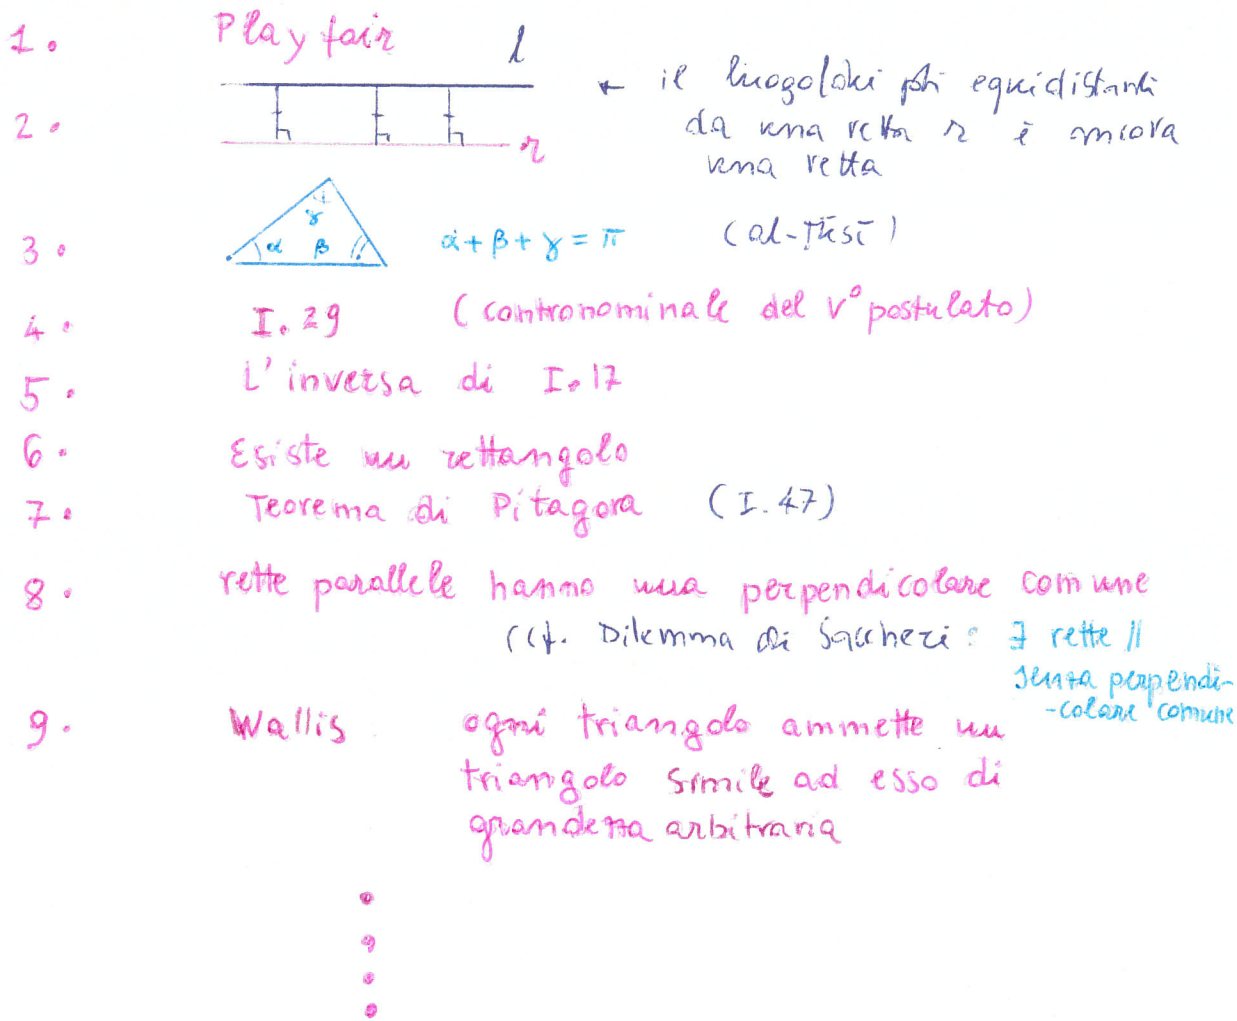 1. Playfair
l
← il luogo dei pti equidistanti
2. da una retta r è ancora
r
una retta
γ
3. α β α+β+γ=π (al-Tūsī)
4. I.29 (contronominale del V° postulato)
5. L'inversa di I.17
6. Esiste un rettangolo
7. Teorema di Pitagora (I.47)
8. rette parallele hanno una perpendicolare comune
(cf. Dilemma di Saccheri: ∃ rette //
senza perpendi-
-colare comune
9. Wallis ogni triangolo ammette un
triangolo simile ad esso di
grandezza arbitraria